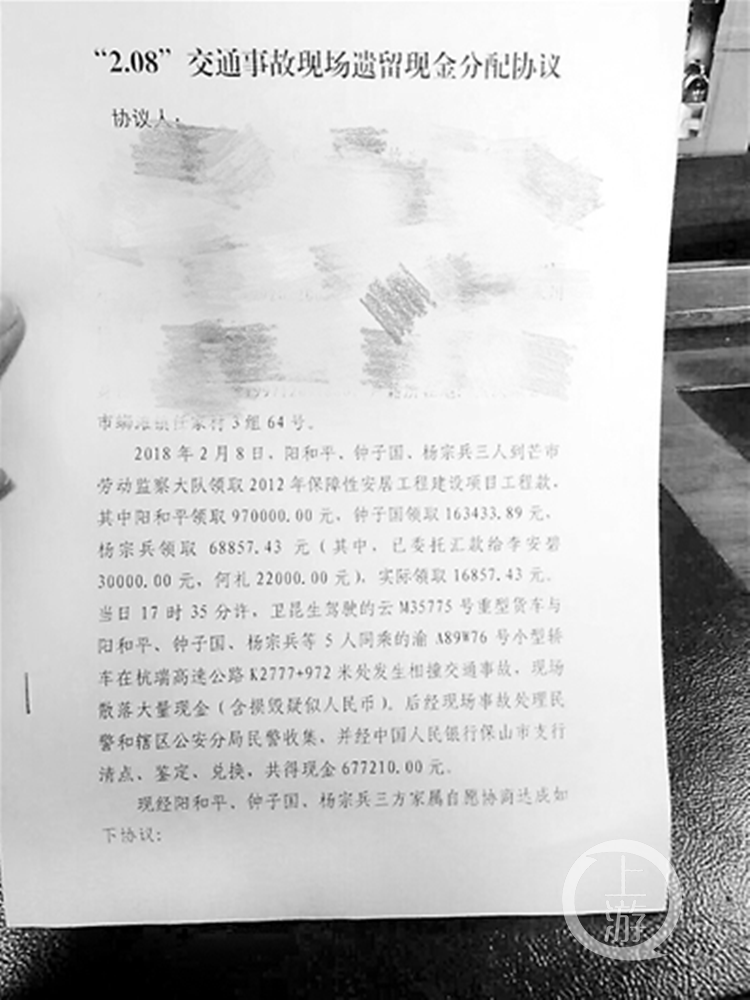 “2.08”交通事故现场遗留现金分配协议
协议人：
市 镇任家村3组64号。
2018年2月8日，阳和平、钟子国、杨宗兵三人到芒市
劳动监察大队领取2012年保障性安居工程建设项目工程款，
其中阳和平领取970000.00元，钟子国领取163433.89元，
杨宗兵领取 68857.43 元（其中，已委托汇款给李安碧
30000.00元，何札22000.00元），实际领取16857.43元。
当日17时35分许，卫昆生驾驶的云M35775号重型货车与
阳和平、钟子国、杨宗兵等5人同乘的渝A89W76号小型轿
车在杭瑞高速公路K2777+972米处发生相撞交通事故，现场
散落大量现金（含损毁疑似人民币）。后经现场事故处理民
警和辖区公安分局民警收集，并经中国人民银行保山市支行
清点、鉴定、兑换，共得现金677210.00元。
现经阳和平、钟子国、杨宗兵三方家属自愿协商达成如
下协议：
上游